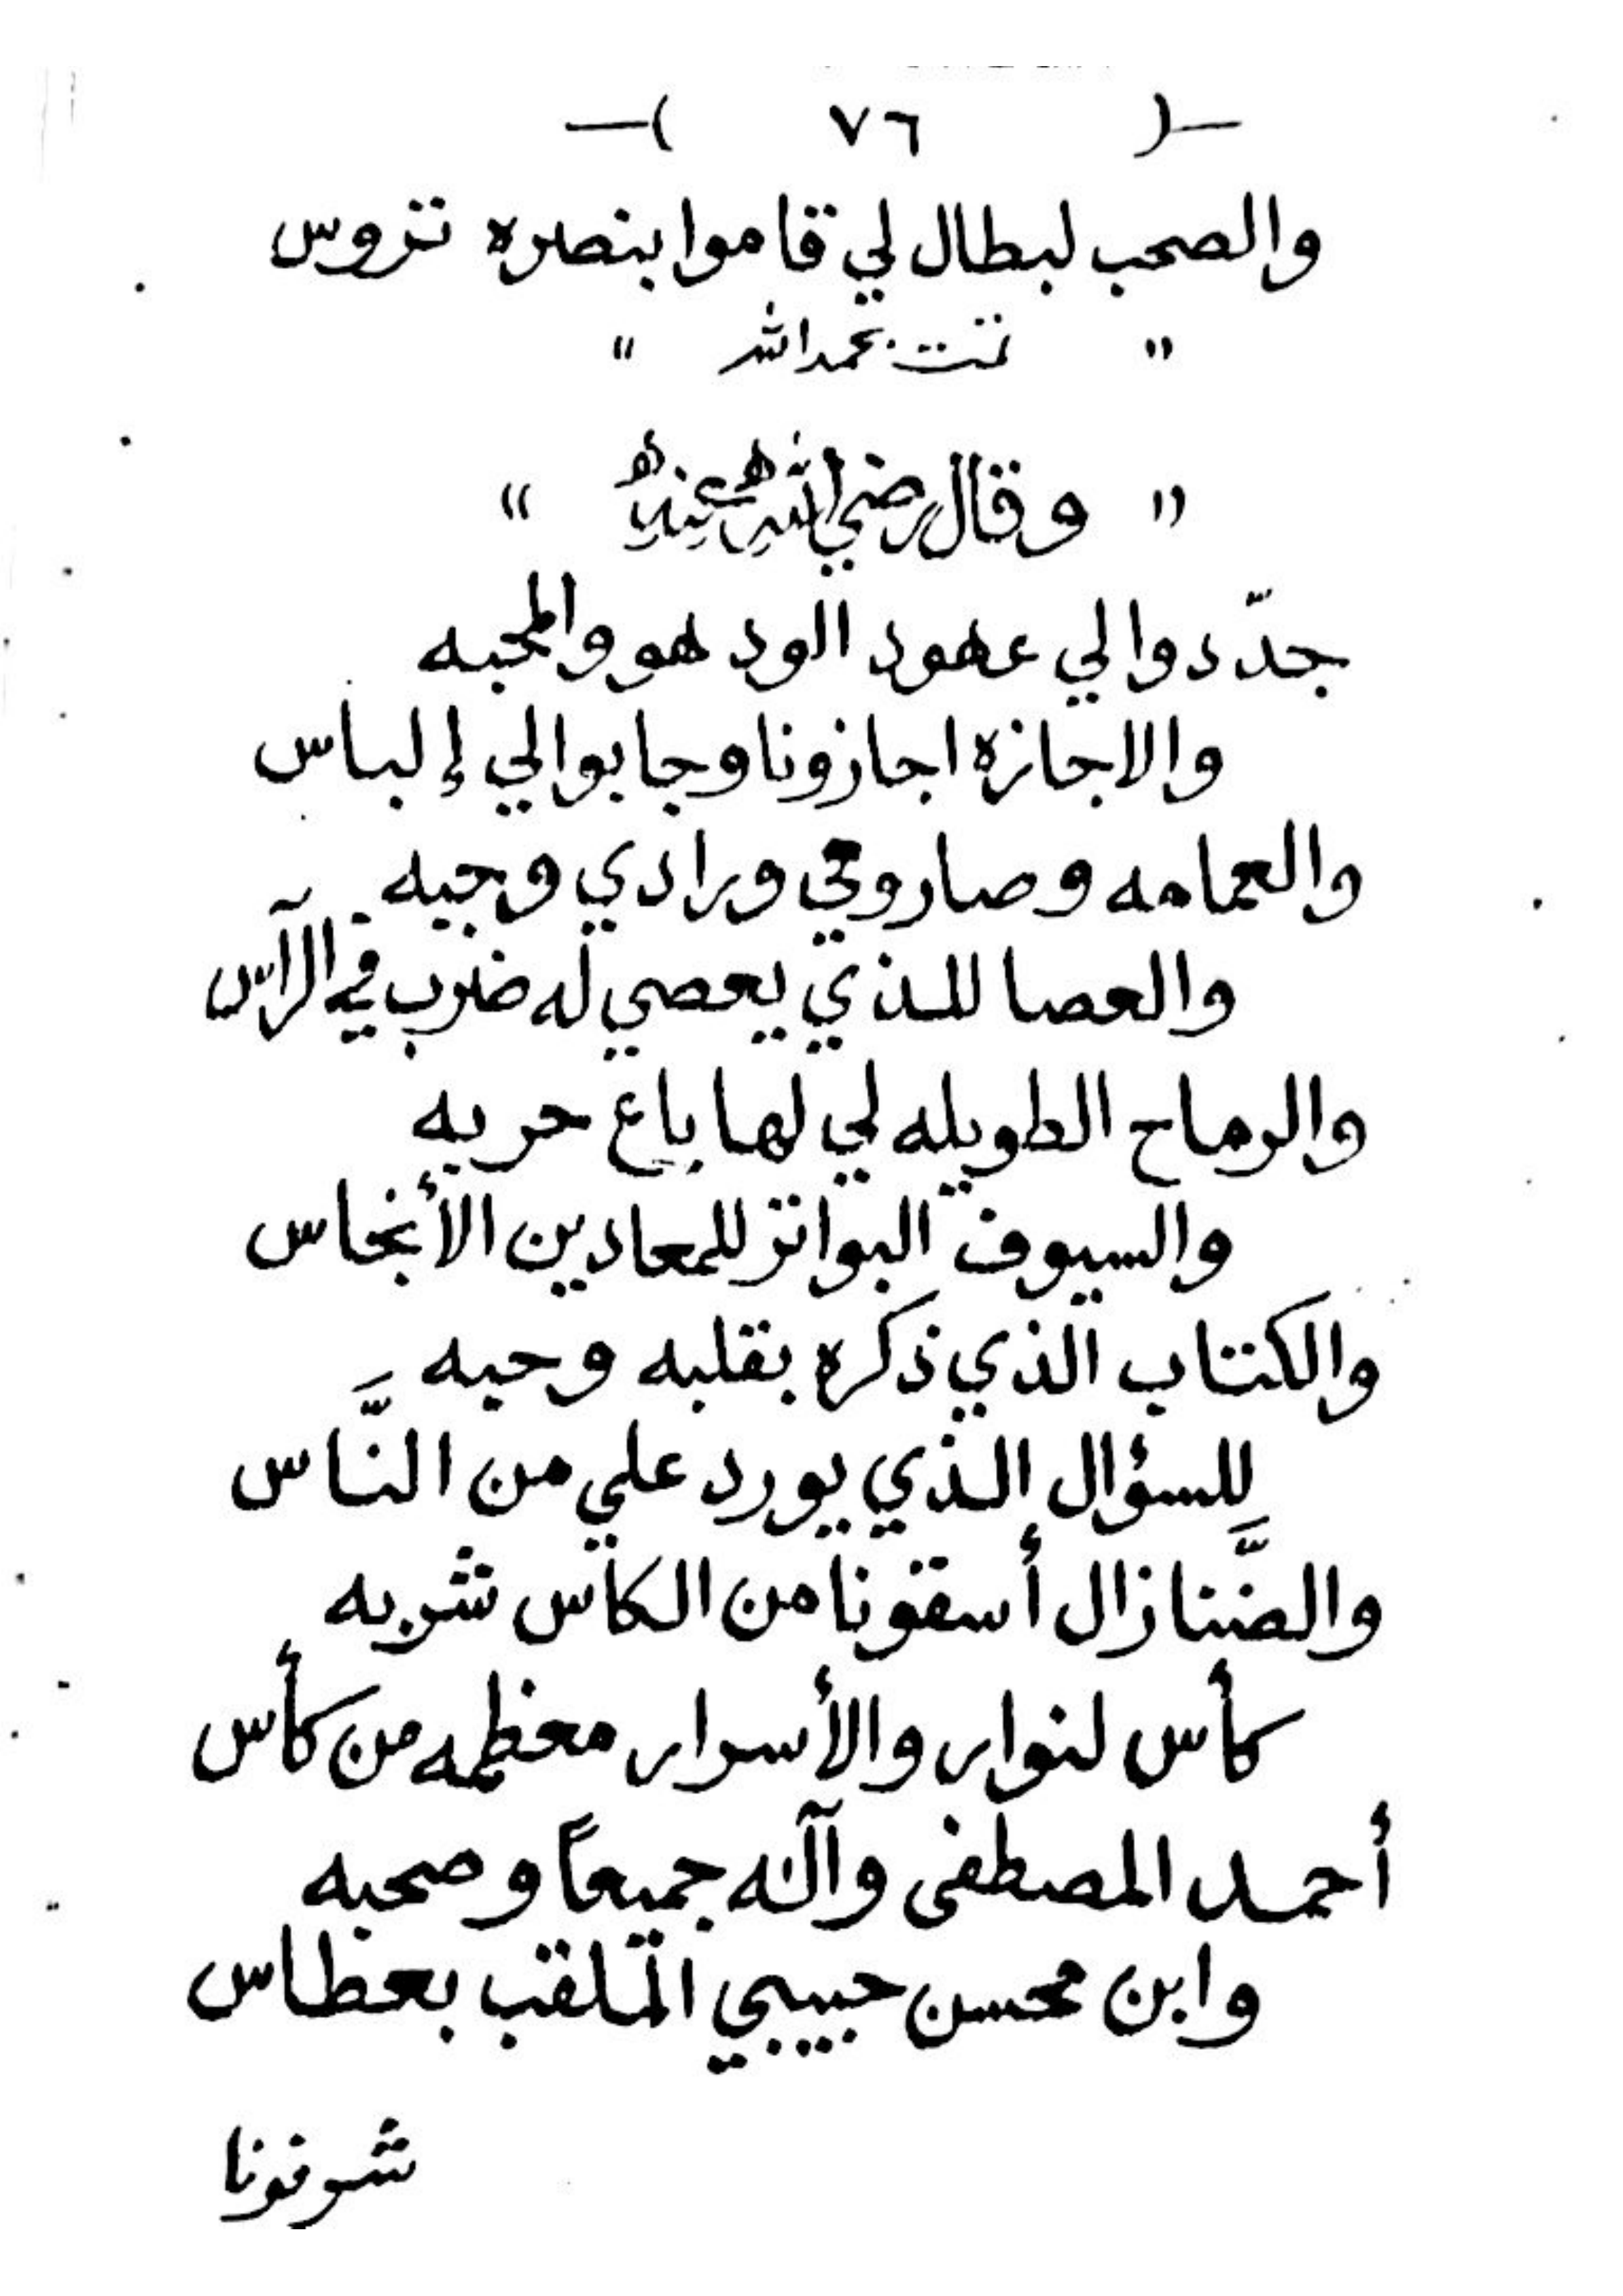 —( ٧٦ )—
والصحب لبطال لي قاموا بنصره تروس
" تمت بحمد الله "
" وقال رضي الله عنه "
جدّدوا لي عهود الود هو والمحبه
والاجازه اجازونا وجابوا لي إلباس
والعمامه وصاروفي ورادي وجبه
والعصا للذي يعصي له ضرب في الرآس
والرماح الطويله لي لها باع حربه
والسيوف البواتر للمعادين الأنجاس
والكتاب الذي ذكره بقلبه وحبه
لِلسؤال الذي يورد علي من النَّاس
والضَّنا زال أسقونا من الكاس شربه
كأس لنوار والأسرار معظمه من كأس
أحمد المصطفى وآله جميعاً وصحبه
وابن محسن حبيبي الملقب بعطاس
شرفونا